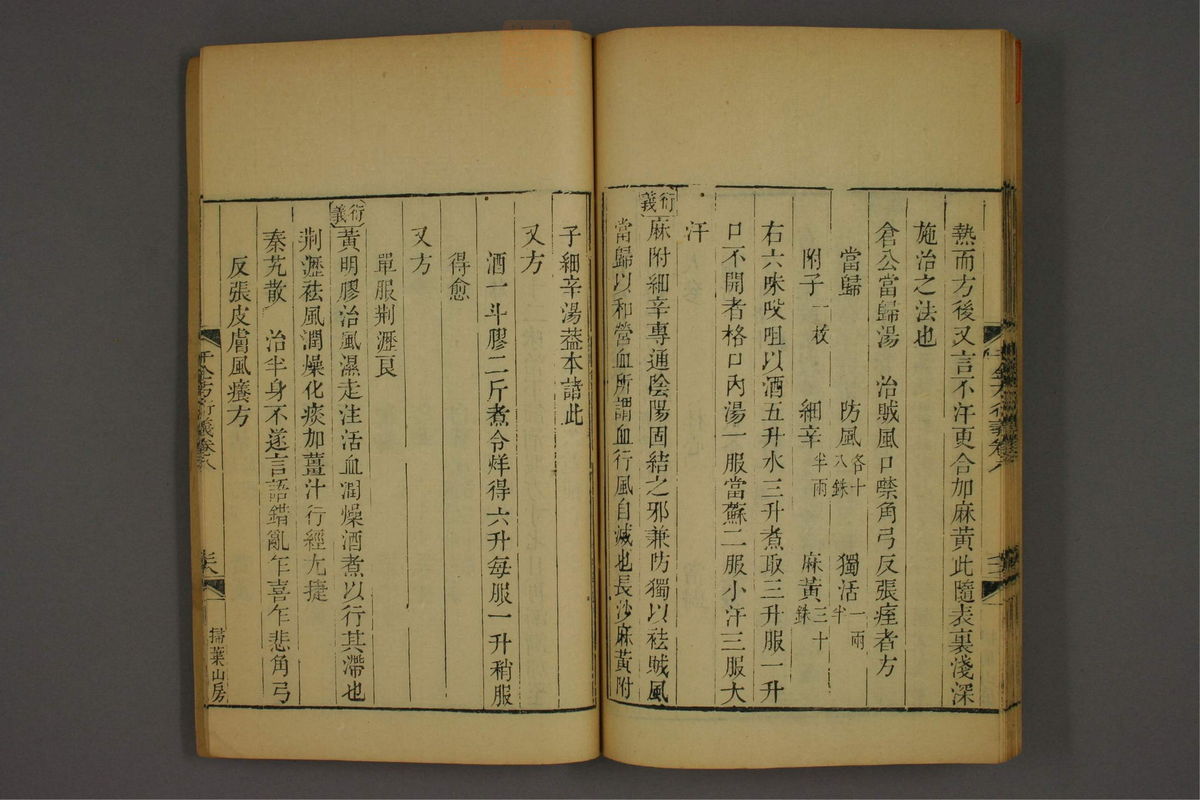 熱而方後又言不汗更合加麻黃此隨表裏淺深
施治之法也
倉公當歸湯 治賊風口噤角弓反張痓者方
當歸 防風各十八銖 獨活一兩半
附子一枚 細辛半兩 麻黃三十銖
右六味㕮咀以酒五升水三升煮取三升服一升
口不開者格口內湯一服當蘇二服小汗三服大
汗
衍義
麻附細辛專通陰陽固結之邪兼防獨以祛賊風
當歸以和營血所謂血行風自滅也長沙麻黃附
子細辛湯葢本諸此
又方
酒一斗膠二斤煮令烊得六升每服一升稍服
得愈
又方
單服荆瀝良
衍義
黃明膠治風濕走注活血潤燥酒煮以行其滯也
荆瀝祛風潤燥化痰加薑汁行經尤捷
秦艽散 治半身不遂言語錯亂乍喜乍悲角弓
反張皮膚風癢方
千金方衍義卷八
掃葉山房